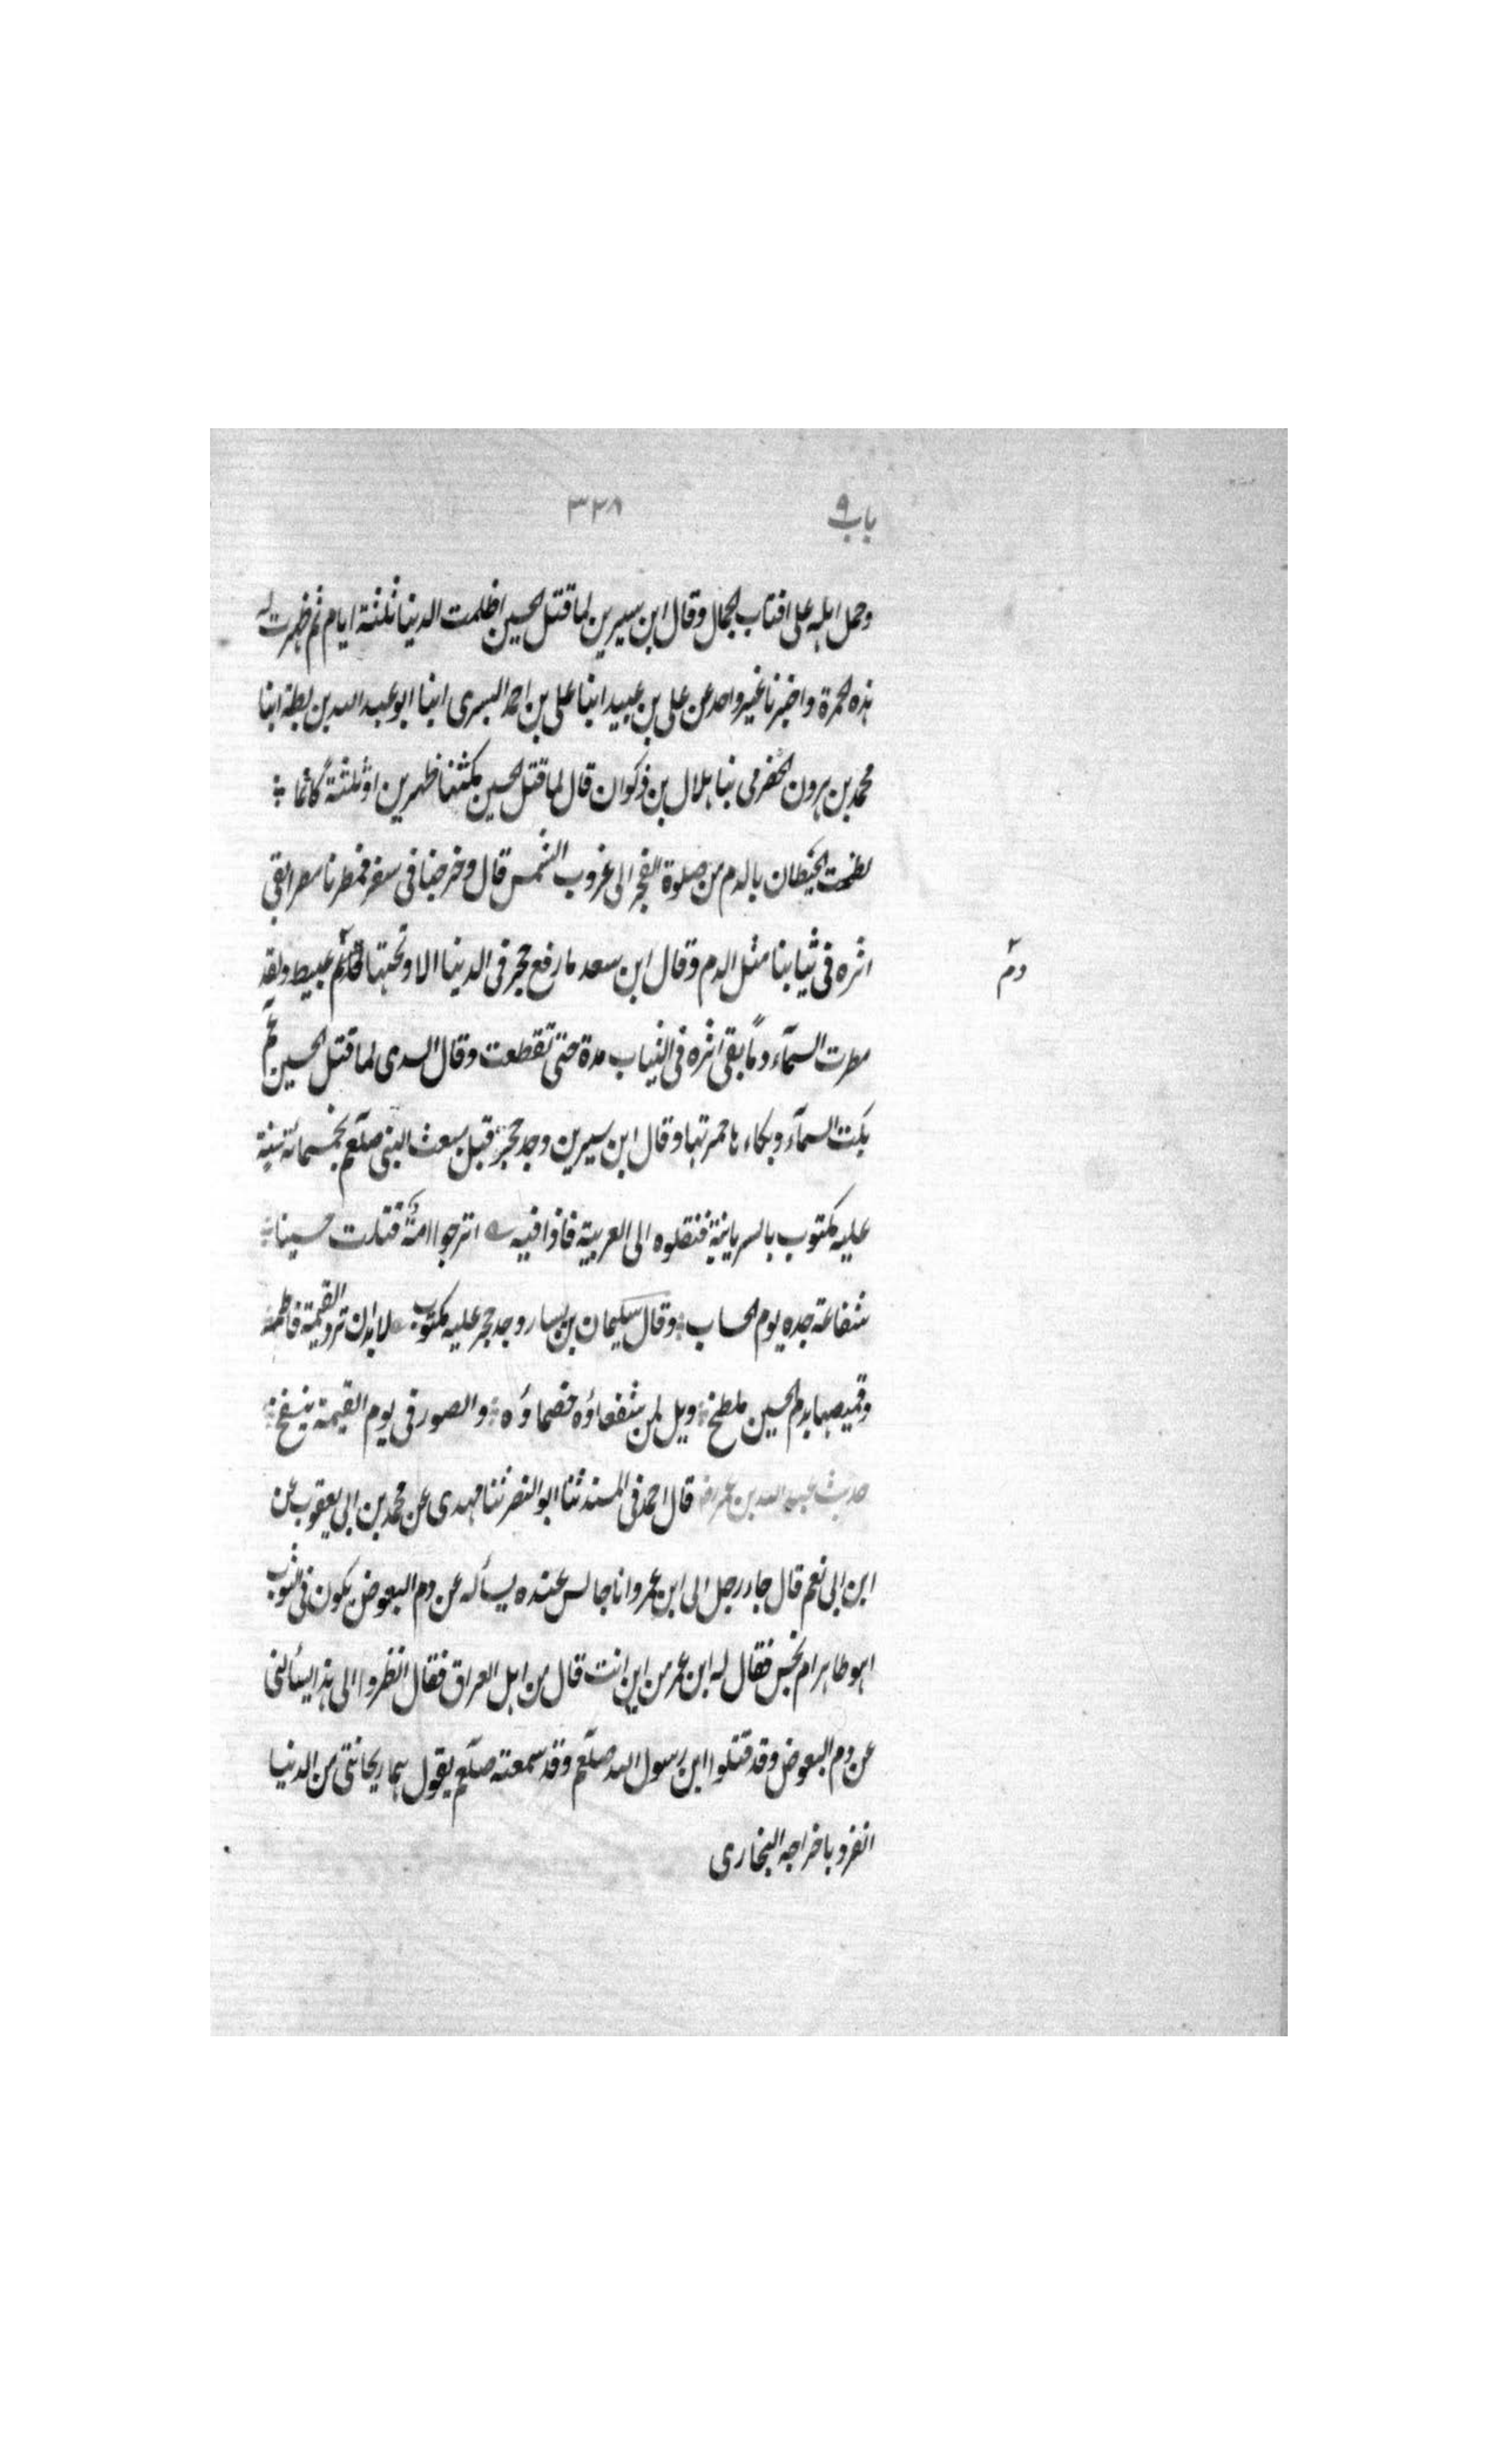 باب ٩ ٣٢٨
وحمل اہلہ على اقتاب الجمال وقال ابن سيرين لما قتل الحسين اظلمت الدنيا ثلثة ايام ثم ظہرت
ہذہ الحمرة واخبرنا غير واحد عن على بن عبيد ابنا على بن احمد البسرى ابنا ابو عبد اللہ بن بطة ابنا
محمد بن ہرون الحضرمى نبا ہلال بن ذكوان قال لما قتل الحسين مكثنا ظہرين او ثلثة كانما
لطخت الحيطان بالدم من صلوة الفجر الى غروب الشمس قال وخرجنا فى سفر فمطرنا مطرا بقى
اثره فى ثيابنا مثل الدم وقال ابن سعد ما رفع حجر فى الدنيا الا وتحتہا عبيط ولقد
دم
مطرت السمآء دمًا بقى اثره فى الثياب مدة حتى تقطعت وقال السدى لما قتل الحسين عم
بكت السمآء وبكاءہا حمرتہا وقال ابن سيرين وجد حجر قبل مبعث النبى صلعم بخمسمائة سنة
عليه مكتوب بالسريانية فنقلوه الى العربية فاذا فيه اترجوا امة قتلت حسينا
شفاعة جده يوم الحساب وقال سليمان بن يسار وجد حجر عليه مكتوب لا بد ان ترد القيمة فاطمة
وقميصہا بدم الحسين ملطخ ويل لمن شفعاؤه خصماؤه والصور فى يوم القيمة ينفخ
حديث عبد اللہ بن عمر رض قال احمد فى المسند ثنا ابو النضر ثنا مہدى عن محمد بن ابى يعقوب عن
ابن ابى نعم قال جاء رجل الى ابن عمر وانا جالس عنده يسأله عن دم البعوض يكون فى الثوب
اہو طاہر ام نجس فقال له ابن عمر من اين انت قال من اہل العراق فقال انظروا الى ہذا يسألنى
عن دم البعوض وقد قتلوا ابن رسول اللہ صلعم وقد سمعته صلعم يقول ہما ريحانتى من الدنيا
انفرد باخراجه البخارى